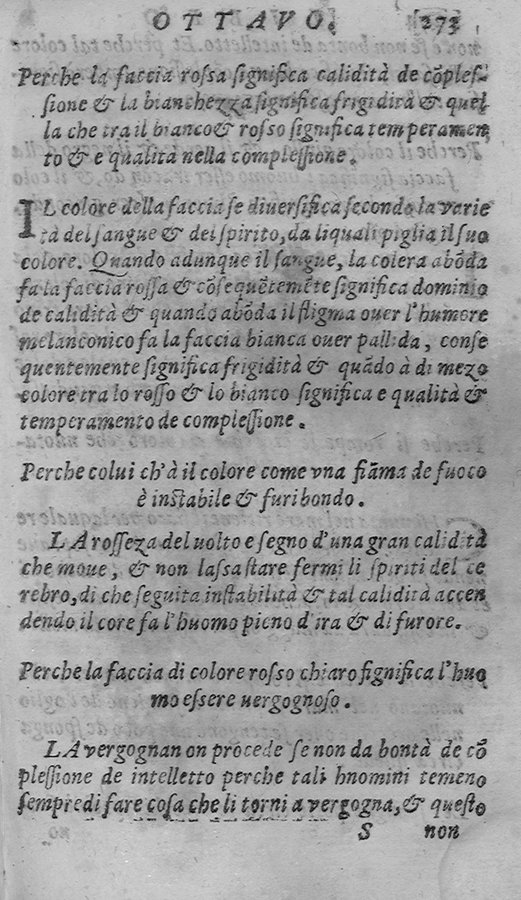 OTTAVO. 273
Perche la faccia rossa significa calidità de cõples-
sione & la bianchezza significa frigidità & quel
la che tra il bianco & rosso significa temperamen
to & e qualita nella complessione.
IL colore della faccia se diuersifica secondo la varie
tà del sangue & del spirito, da li quali piglia il suo
colore. Quando adunque il sangue, la colera abõda
fa la faccia rossa & cõsequẽtemẽte significa dominio
de calidità & quando abõda il fligma ouer l'humore
melanconico fa la faccia bianca ouer pallida, conse
quentemente significa frigidità & quãdo à di mezo
colore tra lo rosso & lo bianco significa e qualità &
temperamento de complessione.
Perche colui ch'à il colore come vna fiãma de fuoco
è instabile & furibondo.
LA rosseza del uolto e segno d'una gran calidità
che moue, & non lassa stare fermi li spiriti del ce
rebro, di che seguita instabilità & tal calidità accen
dendo il core fa l'huomo pieno d'ira & di furore.
Perche la faccia di colore rosso chiaro significa l'huo
mo essere uergognoso.
LA vergognan on procede se non da bontà de cõ
plessione de intelletto perche tali hnomini temeno
sempre di fare cosa che li torni a vergogna, & questo
S non